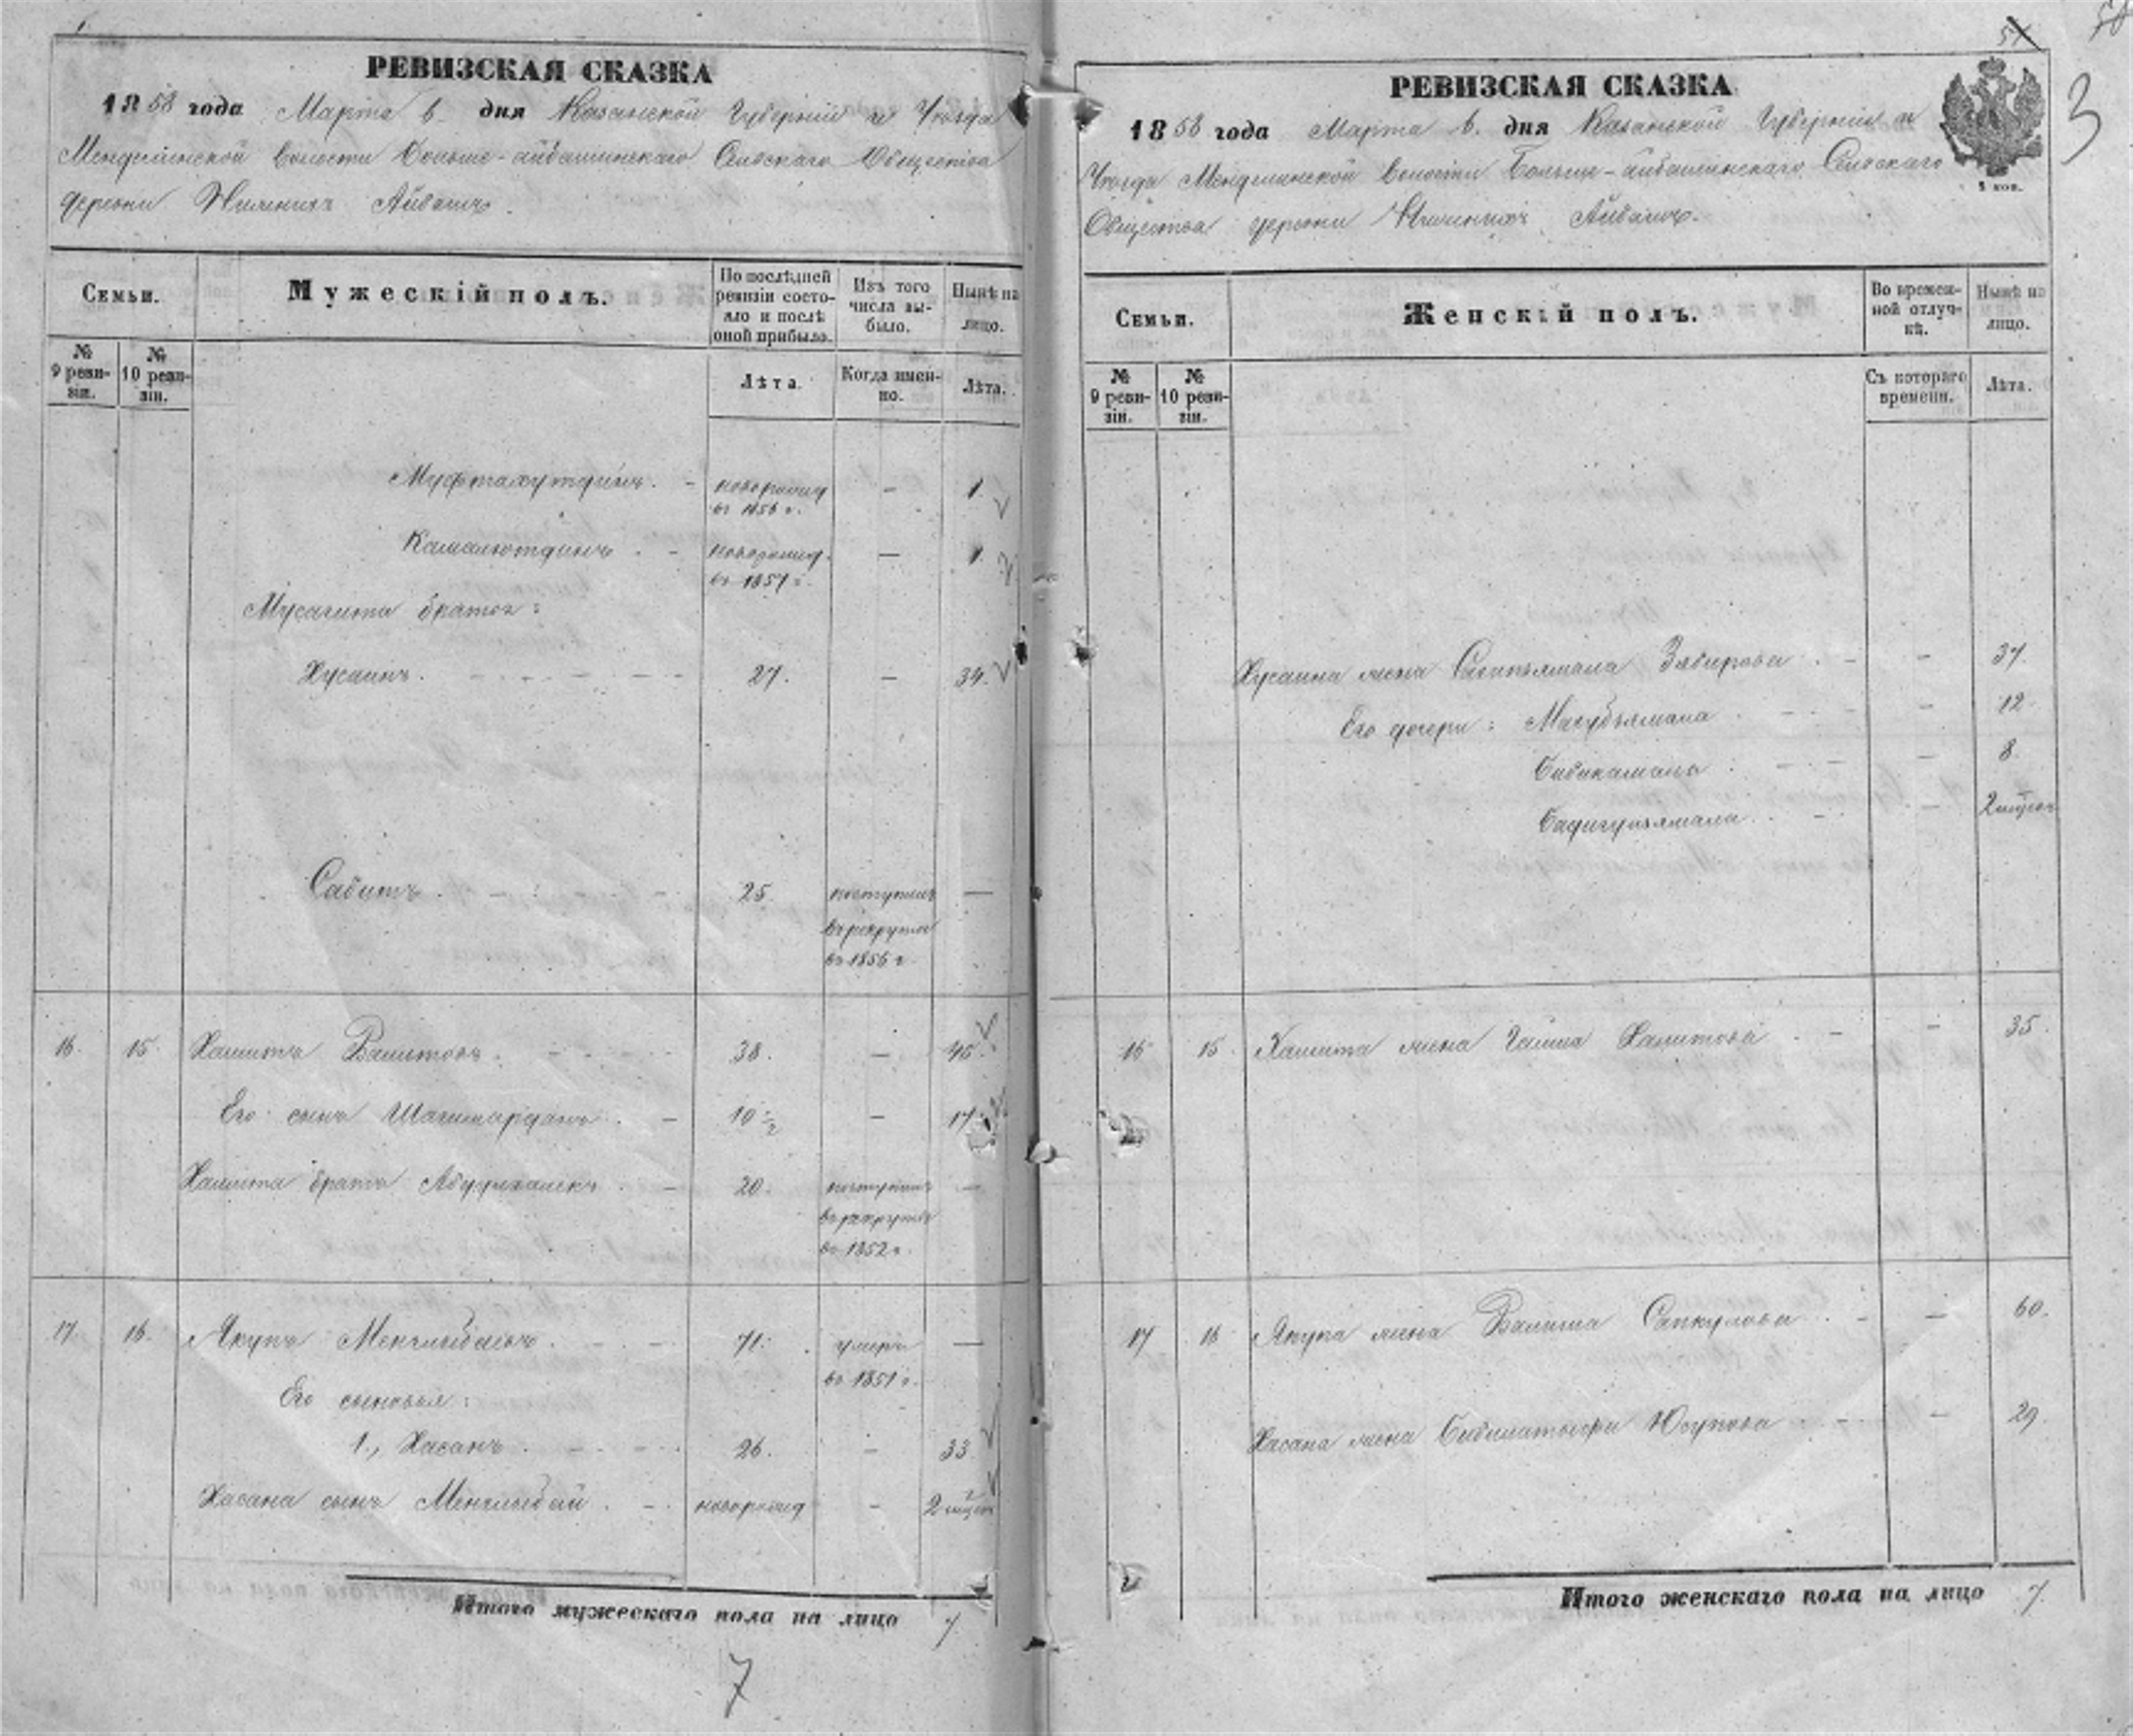 РЕВИЗСКАЯ СКАЗКА
1858 года Марта 6 дня Казанской Губерніи и Уѣзда
Менделинской Волости Больше-айбашинскаго Сельскаго Общества
деревни Нижнихъ Айбашъ.
Семьи.
Мужескій полъ.
По послѣдней ревизіи состояло и послѣ оной прибыло.
Изъ того числа выбыло.
Нынѣ на лицо.
№ 9 ревизіи.
№ 10 ревизіи.
Лѣта.
Когда именно.
Лѣта.
Муфтахутдинъ. - новорожд въ 1856 г. - 1.
Камалютдинъ - новорожд. въ 1857 г. - 1.
Мусагита братья:
Хусаинъ. 27. - 34.
Сабитъ. 25. поступилъ въ рекруты въ 1856 г. -
16. 15. Хамитъ Валитовъ. 38. - 45.
Его сынъ Шагимарданъ. 10 1/2 - 17.
Хамита братъ 20. поступилъ въ рекруты въ 1852 г. -
17. 16. Якупъ Менглыбаевъ. 71. умеръ въ 1851 г. -
Его сыновья:
1., Хасанъ. 26. - 33.
Хасана сынъ Менглыбай. новорожд - 2 мѣсяц
Итого мужескаго пола на лицо 7
7
51
3
РЕВИЗСКАЯ СКАЗКА
1858 года Марта 6. дня Казанской Губерніи и
Уѣзда Менделинской Волости Больше-айбашинскаго Сельскаго
Общества деревни Нижнихъ Айбашъ.
1 коп.
Семьи.
Женскій полъ.
Во временной отлучкѣ.
Нынѣ на лицо.
№ 9 ревизіи.
№ 10 ревизіи.
Съ котораго времени.
Лѣта.
Хусаина жена Забирова - 37.
Его дочери: Магубзямала - 12.
Бибикамала - 8.
- 2 мѣсяц
16 15 Хамита жена Гайша Хамитова - 35.
17 16 Якупа жена Валиша Сапкулова - 60.
Хасана жена Юсупова - 29.
Итого женскаго пола на лицо 7.